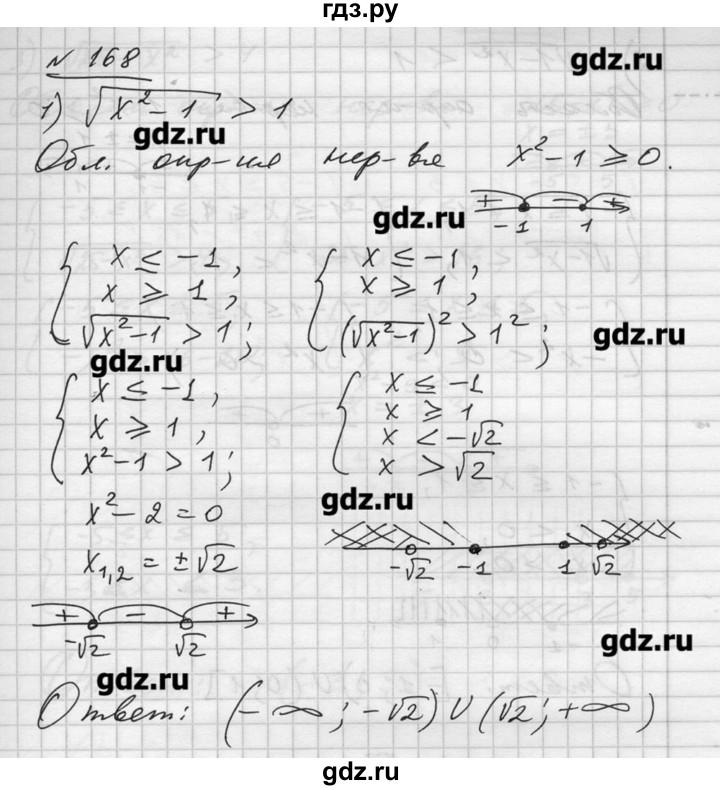 гдз.ру
№ 168
gdz.ru
1) √(x² - 1) > 1
gdz.ru
Обл. опр-ния нер-ва x² - 1 ≥ 0.
+ − +
gdz.ru
-1 1
{ x ≤ -1, x ≥ 1, √(x²-1) > 1;
{ x ≤ -1, x ≥ 1, (√(x²-1))² > 1²;
gdz.ru
gdz.ru
{ x ≤ -1, x ≥ 1, x² - 1 > 1;
{ x ≤ -1 x ≥ 1 x < -√2 x > √2
gdz.ru
x² - 2 = 0
x₁,₂ = ±√2
-√2 -1 1 √2
+ − +
-√2 √2
gdz.ru
gdz.ru
Ответ: (-∞; -√2) ∪ (√2; +∞)
gdz.ru